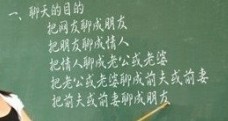 一、聊天的目的
把网友聊成朋友
把朋友聊成情人
把情人聊成老公或老婆
把老公或老婆聊成前夫或前妻
把前夫或前妻聊成朋友